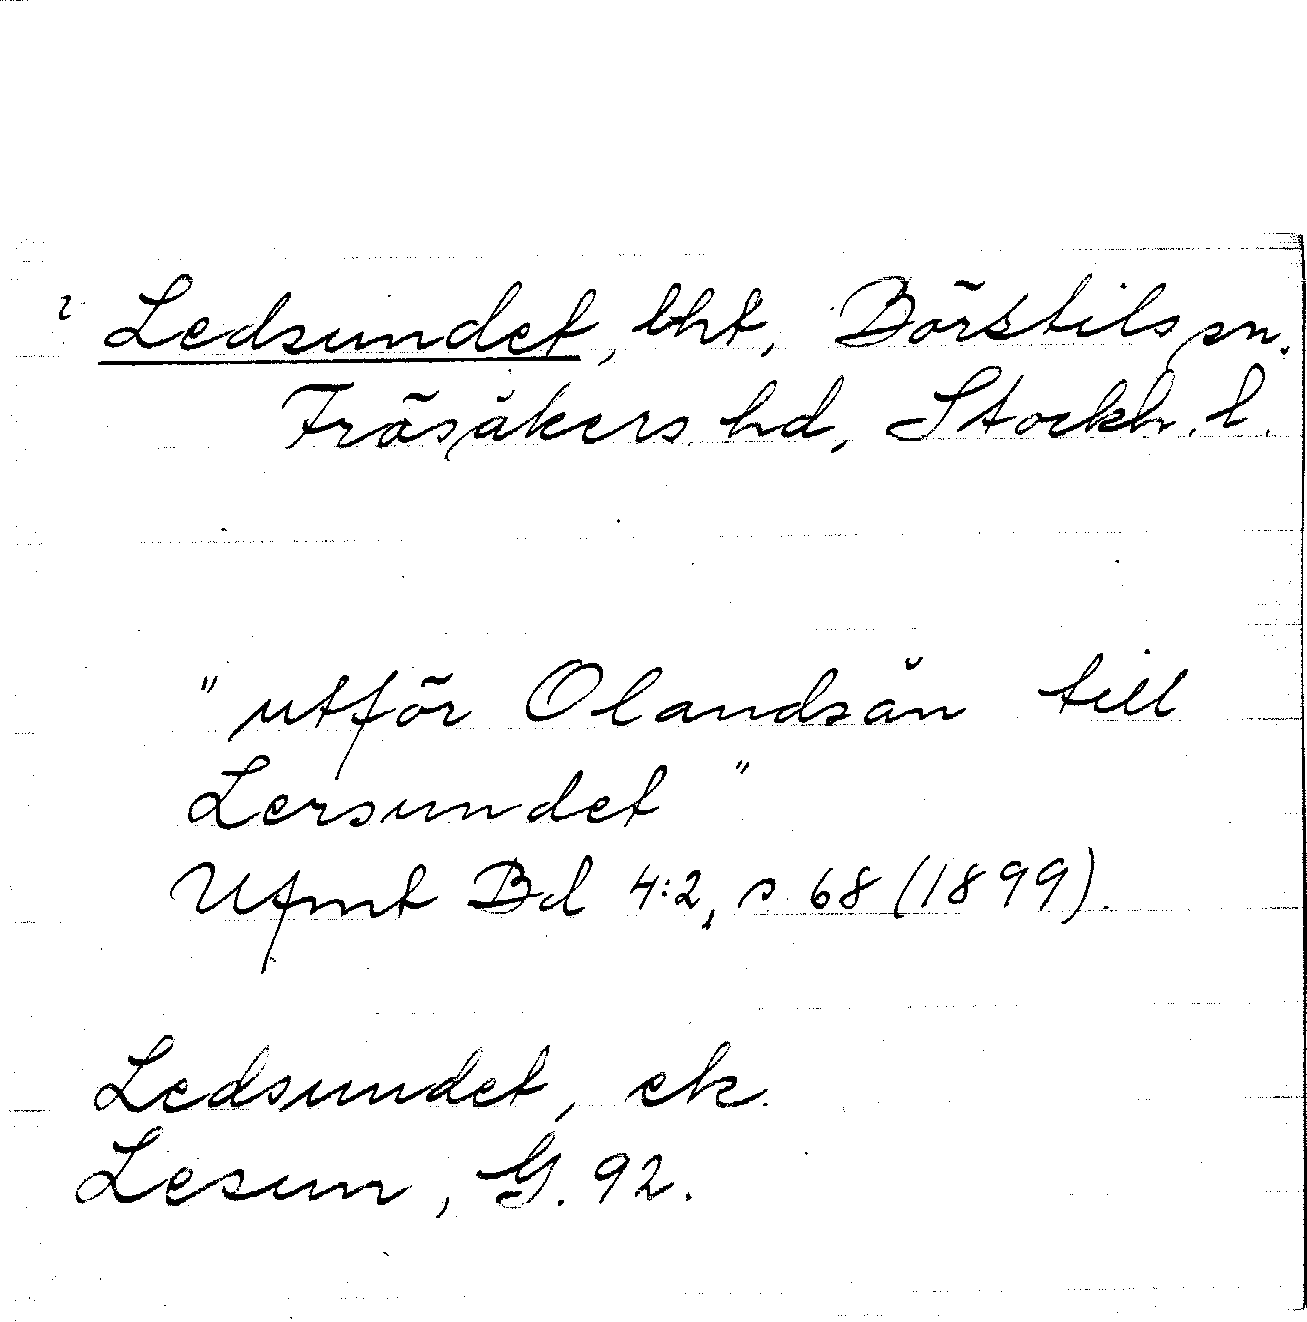 2 Ledsundet, bht, Börstils sn.
Frösåkers hd, Stockh. l.
"utför Olandsån till
Lersundet"
Ufmt Bd 4:2, s 68 (1899).
Ledsundet, ek.
Lesun, G. 92.